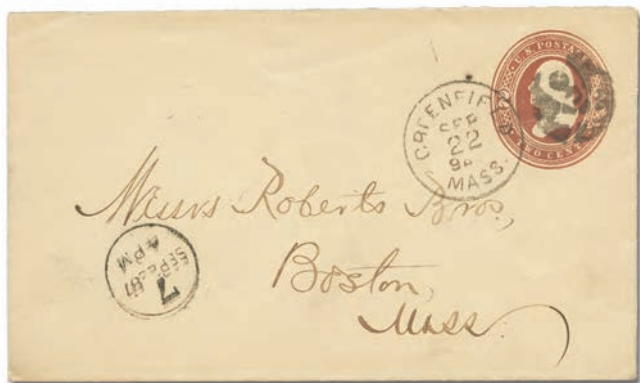 U.S. POSTAGE
TWO CENTS
GREENFIELD
SEP
22
MASS.
Messrs Roberts Bros.,
Boston,
Mass.
7
4 PM